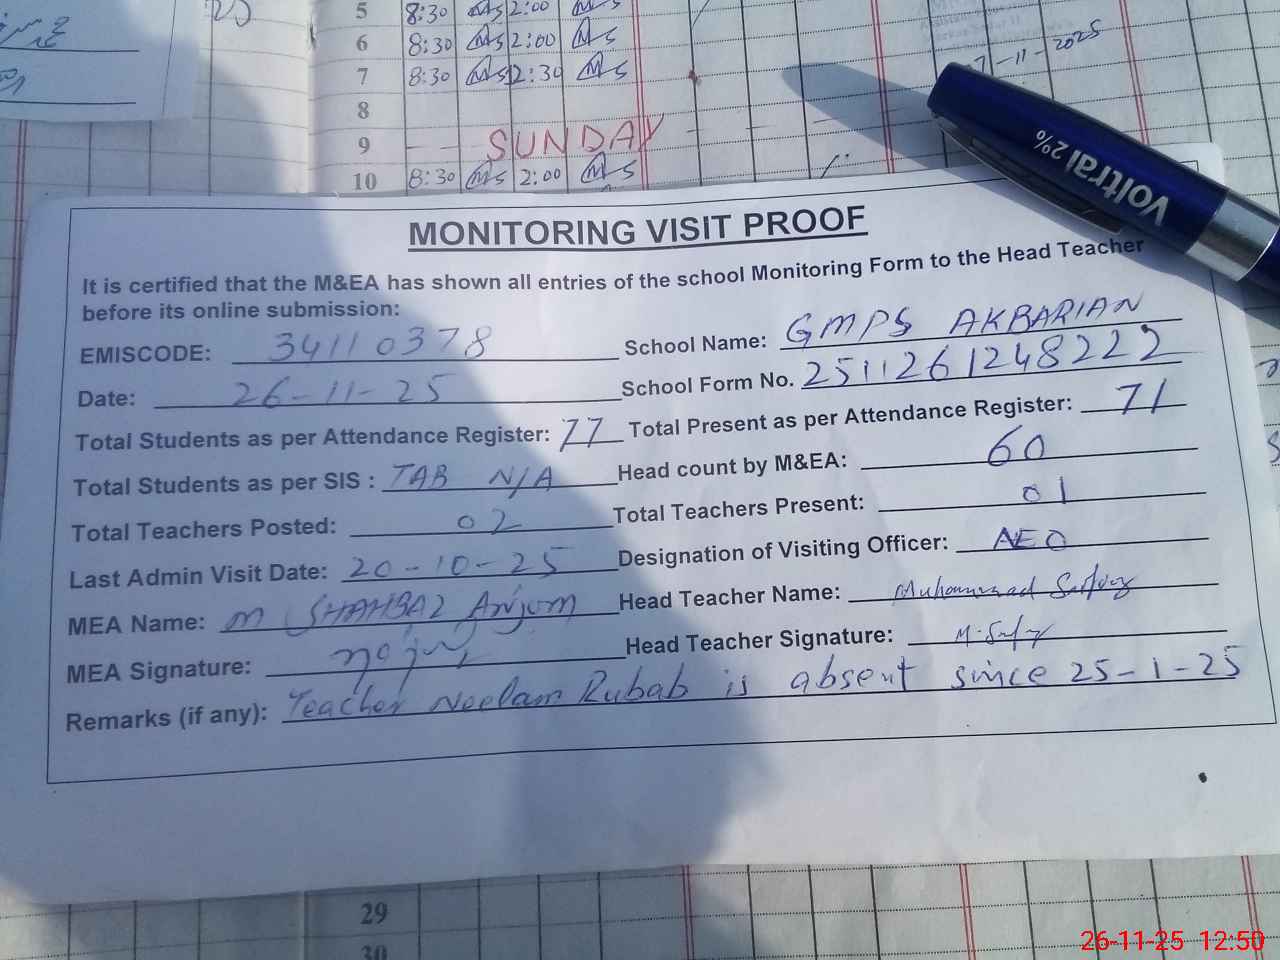 5 8:30 Ms 2:00 Ms
6 8:30 Ms 2:00 Ms
7 8:30 Ms 2:30 Ms
8
9 SUNDAY
10 8:30 Ms 2:00 Ms
-11-2025
Voltral 2%
MONITORING VISIT PROOF
It is certified that the M&EA has shown all entries of the school Monitoring Form to the Head Teacher
before its online submission:
EMISCODE: 34110378 School Name: GMPS AKBARIAN
Date: 26-11-25 School Form No. 2511261248222
Total Students as per Attendance Register: 77 Total Present as per Attendance Register: 71
Total Students as per SIS : TAB N/A Head count by M&EA: 60
Total Teachers Posted: 02 Total Teachers Present: 01
Last Admin Visit Date: 20-10-25 Designation of Visiting Officer: AEO
MEA Name: M SHAHBAZ Anjum Head Teacher Name: Muhammad
MEA Signature: Head Teacher Signature:
Remarks (if any): Teacher Neelam Rubab is absent since 25-1-25
29
30
26-11-25 12:50